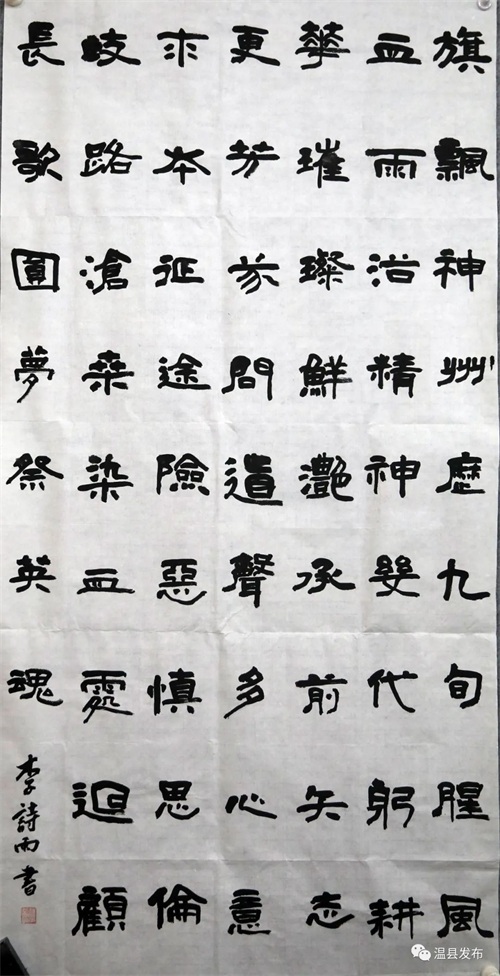 旗飄神州歷九旬腥風
血雨精神幾代躬耕
華璀璨鮮灧承前矢志
更芳芬問遺聲多心意
求本征途險惡慎思倫
歧路滄桑染血處迴顧
長歌圓夢祭英魂
李詩雨書
温县发布